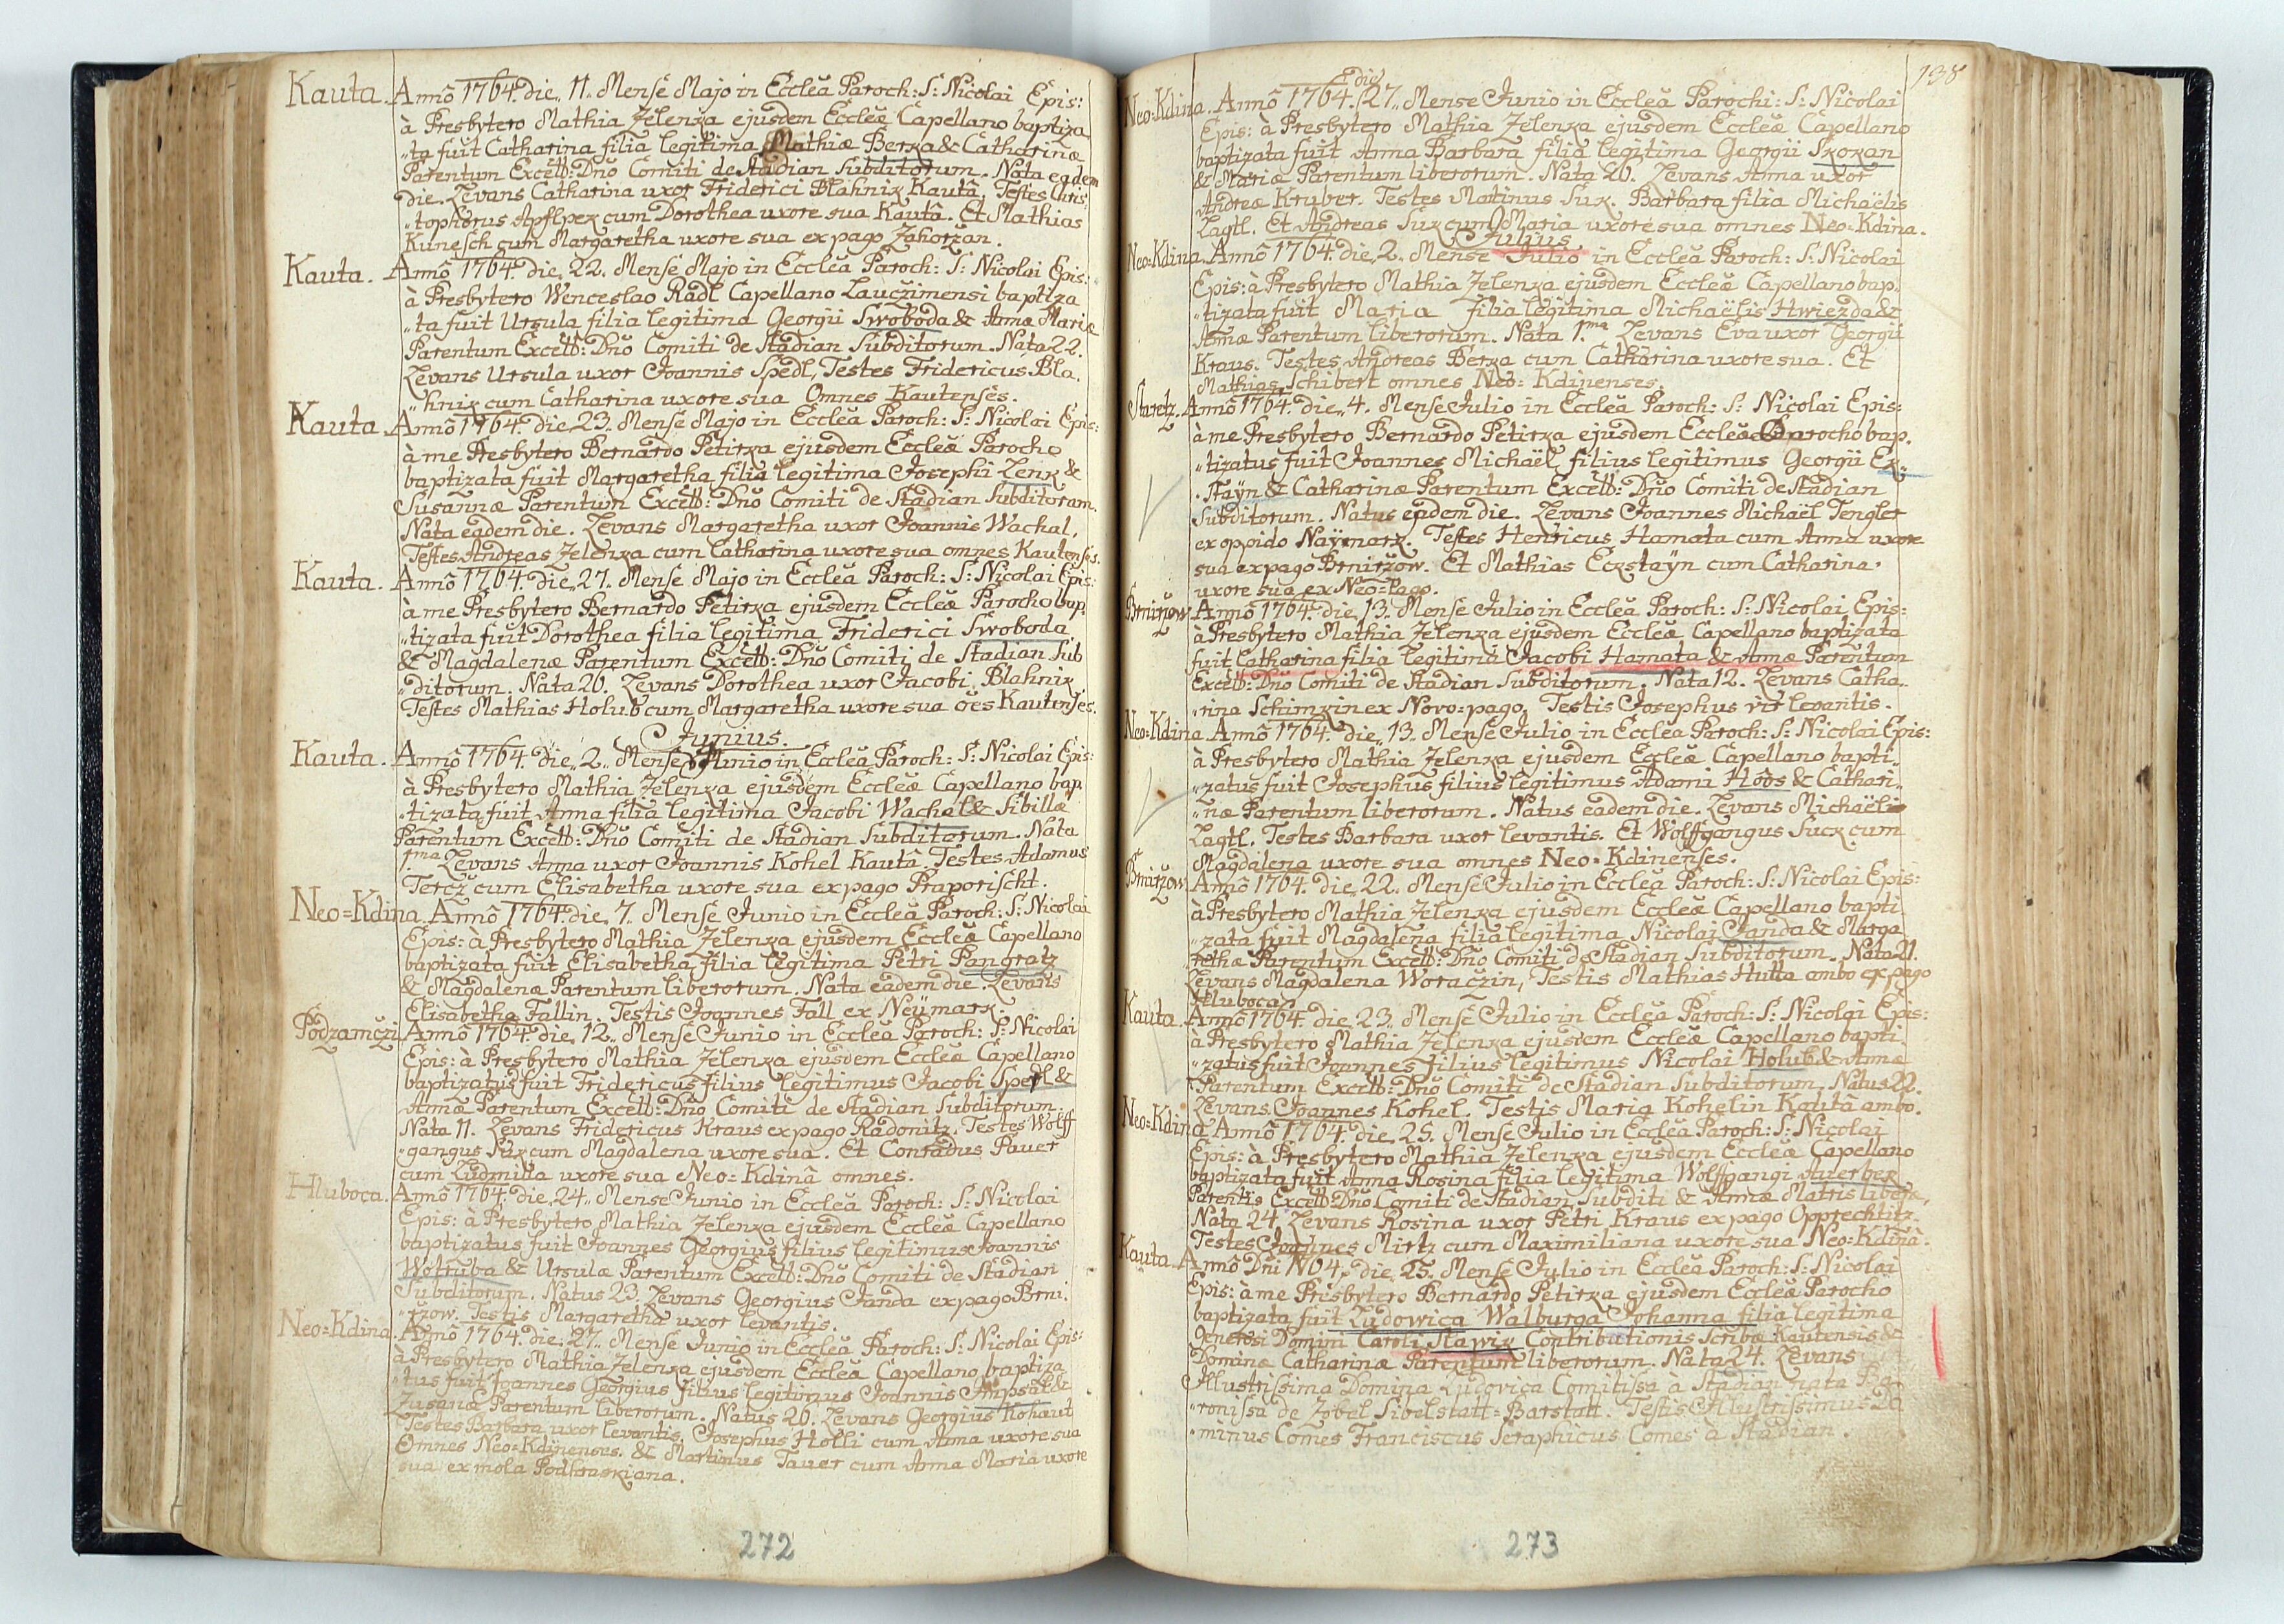 Kauta. Annô 1764. die 11. Mense Majo in Eccleâ Paroch: S: Nicolai Epis:
à Presbytero Mathia Zelenka ejusdem Eccleæ Capellano baptiza
"ta fuit Catharina filia legitima Mathiæ Berka & Catharinæ
Parentum Excell: Dño Comiti de Stadian Subditorum. Nata eadem
die. Levans Catharina uxor Friderici Blahnik Kautâ, Testes Chris
"tophorus cum Dorothea uxore sua Kautâ. Et Mathias
Kunesch cum Margaretha uxore sua ex pago Zahoržan.
Kauta. Annô 1764. die 22. Mense Majo in Eccleâ Paroch: S: Nicolai Epis:
à Presbytero Wenceslao Rädl Capellano Laucžimensi baptiza
"ta fuit Ursula filia legitima Georgii Swoboda & Annæ Mariæ
Parentum Excell: Dño Comiti de Stadian Subditorum. Nata 22.
Levans Ursula uxor Joannis Spedl, Testes Fridericus Bla.
"hnik cum Catharina uxore sua Omnes Kautenses.
Kauta. Annô 1764. die 23. Mense Majo in Eccleâ Paroch: S: Nicolai Epis:
à me Presbytero Bernardo Petirka ejusdem Eccleæ Parocho
baptizata fuit Margaretha filia legitima Josephi Zenk &
Susannæ Parentum Excell: Dño Comiti de Stadian Subditorum.
Nata eadem die. Levans Margaretha uxor Joannis Wachal.
Testes Andreas Zelenka cum Catharina uxore sua omnes Kautenses.
Kauta. Annô 1764 die 27. Mense Majo in Eccleâ Paroch: S: Nicolai Epis:
à me Presbytero Bernardo Petirka ejusdem Eccleæ Parocho bap.
"tizata fuit Dorothea filia legitima Friderici Swoboda
& Magdalenæ Parentum Excell: Dño Comiti de Stadian Sub
"ditorum. Nata 26. Levans Dorothea uxor Jacobi Blahnik
Testes Mathias Holub cum Margaretha uxore sua oēs Kautenses.
Junius.
Kauta. Annô 1764. die 2. Mense Junio in Eccleâ Paroch: S: Nicolai Epis:
à Presbytero Mathia Zelenka ejusdem Eccleæ Capellano bap
"tizata fuit Anna filia legitima Jacobi Wachal & Sibillæ
Parentum Excell: Dño Comiti de Stadian Subditorum. Nata
1ma Levans Anna uxor Joannis Kohel Kautâ. Testes Adamus
Tercž cum Elisabetha uxore sua ex pago Praporischt.
Neo=Kdina Annô 1764. die 7. Mense Junio in Eccleâ Paroch: S: Nicolai
Epis: à Presbytero Mathia Zelenka ejusdem Eccleæ Capellano
baptizata fuit Elisabetha filia legitima Petri Pangratz
& Magdalenæ Parentum liberorum. Nata eadem die. Levans
Elisabetha Fallin. Testis Joannes Fall ex Neümark.
Podzamczi Annô 1764. die 12. Mense Junio in Eccleâ Paroch: S: Nicolai
Epis: à Presbytero Mathia Zelenka ejusdem Eccleæ Capellano
baptizatus fuit Fridericus filius legitimus Jacobi Spedl &
Annæ Parentum Excell: Dño Comiti de Stadian Subditorum.
Nata 11. Levans Fridericus Kraus ex pago Radonitz. Testes Wolff
"gangus Suk cum Magdalena uxore sua. Et Conradus Pauer
cum Ludmilla uxore sua Neo=Kdinâ omnes.
Hluboca. Annô 1764. die 24. Mense Junio in Eccleâ Paroch: S: Nicolai
Epis: à Presbytero Mathia Zelenka ejusdem Eccleæ Capellano
baptizatus fuit Joannes Georgius filius legitimus Joannis
Wotruba & Ursulæ Parentum Excell: Dño Comiti de Stadian
Subditorum. Natus 23. Levans Georgius Janda ex pago Brni.
"ržow. Testis Margaretha uxor levantis.
Neo=Kdina. Añô 1764. die 27. Mense Junio in Eccleâ Paroch: S: Nicolai Epis:
à Presbytero Mathia Zelenka ejusdem Eccleæ Capellano baptiza
"tus fuit Joannes Georgius filius legitimus Joannis &
Zusanæ Parentum liberorum. Natus 26. Levans Georgius Kohaut
Testes Barbara uxor levantis, Josephus Holli cum Anna uxore sua
Omnes Neo=Kdinenses. & Martinus Tauer cum Anna Maria uxore
sua ex mola Podhraskiana.
272
138
Neo=Kdina. Annô 1764. die 27. Mense Junio in Eccleâ Parochi: S: Nicolai
Epis: à Presbytero Mathia Zelenka ejusdem Eccleæ Capellano
baptizata fuit Anna Barbara filia legitima Georgii Skokan
& Mariæ Parentum liberorum. Nata 26. Levans Anna uxor
Andreæ Kruber. Testes Matinus Suk. Barbara filia Michaëlis
Lagtl. Et Andreas Suk cum Maria uxore sua omnes Neo=Kdina.
Julius
Neo=Kdina Annô 1764. die 2. Mense Julio in Eccleâ Paroch: S: Nicolai
Epis: à Presbytero Mathia Zelenka ejusdem Eccleæ Capellano bap.
"tizata fuit Maria filia legitima Michaëlis Hwiezda &
Annæ Parentum liberorum. Nata 1.ma Levans Eva uxor Georgii
Kraus. Testes Andreas Berka cum Catharina uxore sua. Et
Mathias Schibert omnes Neo=Kdinenses.
Staretz. Annô 1764. die 4. Mense Julio in Eccleâ Paroch: S: Nicolai Epis:
à me Presbytero Bernardo Petirka ejusdem Eccleæ Parocho bap.
"tizatus fuit Joannes Michaël filius legitimus Georgii Ek"
"staÿn & Catharinæ Parentum Excell: Dño Comiti de Stadian
Subditorum. Natus eadem die. Levans Joannes Michaël Tengler
ex opoido Naÿmark. Testes Henricus Hamata cum Anna uxore
sua ex pago Brniržow. Et Mathias Eckstaÿn cum Catharina
uxore sua ex Neo=Pago.
Brniržow Annô 1764. die 13. Mense Julio in Eccleâ Paroch: S: Nicolai Epis:
à Presbytero Mathia Zelenka ejusdem Eccleæ Capellano baptizata
fuit Catharina filia legitima Jacobi Hamata & Annæ Parentum
Excell: Dño Comiti de Stadian Subditorum. Nata 12. Levans Catha.
"rina Schimkin ex Novo=pago. Testis Josephus vir levantis.
Neo=Kdina Annô 1764. die 13. Mense Julio in Eccleâ Paroch: S: Nicolai Epis:
à Presbytero Mathia Zelenka ejusdem Eccleæ Capellano bapti"
"zatus fuit Josephus filius legitimus Adami Höds & Cathari"
"næ Parentum liberorum. Natus eadem die. Levans Michaëlis
Lagtl. Testes Barbara uxor levantis. Et Wolffgangus Suck cum
Magdalena uxore sua omnes Neo=Kdinenses.
Brniržow Annô 1764. die 22. Mense Julio in Eccleâ Paroch: S: Nicolai Epis:
à Presbytero Mathia Zelenka ejusdem Eccleæ Capellano bapti
"zata fuit Magdalena filia legitima Nicolai Janda & Marga
rethæ Parentum Excell: Dño Comiti de Stadian Subditorum. Nata 21.
Levans Magdalena Woraczin, Testis Mathias Hutta ambo ex pago
Hlubocan
Kauta. Annô 1764. die 23. Mense Julio in Eccleâ Paroch: S: Nicolai Epis:
à Presbytero Mathia Zelenka ejusdem Eccleæ Capellano bapti.
"zatus fuit Joannes filius legitimus Nicolai Holub & Annæ
Parentum Excell: Dño Comiti de Stadian Subditorum. Natus 22.
Levans Joannes Kohel. Testis Maria Kohelin Kautâ ambo.
Neo=Kdina Annô 1764. die 25. Mense Julio in Eccleâ Paroch: S: Nicolai
Epis: à Presbytero Mathia Zelenka ejusdem Eccleæ Capellano
baptizata fuit Anna Rosina filia legitima Wolffgangi Auerbek
Parentis Excell: Dño Comiti de Stadian Subditi & Annæ Matris liberæ,
Nata 24. Levans Rosina uxor Petri Kraus ex pago Opprechtitz
Testes Joannes Mirtz cum Maximiliana uxore sua Neo=Kdinâ.
Kauta. Annô Dni 1764. die 25. Mense Julio in Eccleâ Paroch: S: Nicolai
Epis: à me Presbytero Bernardo Petirka ejusdem Eccleæ Parocho
baptizata fuit Ludowica Walburga Johanna filia legitima
Generosi Domini Caroli Stawik Contributionis Scribæ Kautensis &
Dominæ Catharinæ Parentum liberorum. Nata 24. Levans
Illustrissima Domina Ludovica Comitissa à Stadian nata Ba"
"ronissa de Zobel Sibelstatt=Barstatt. Testis Illustrissimus Do
"minus Comes Franciscus Seraphicus Comes à Stadian.
273